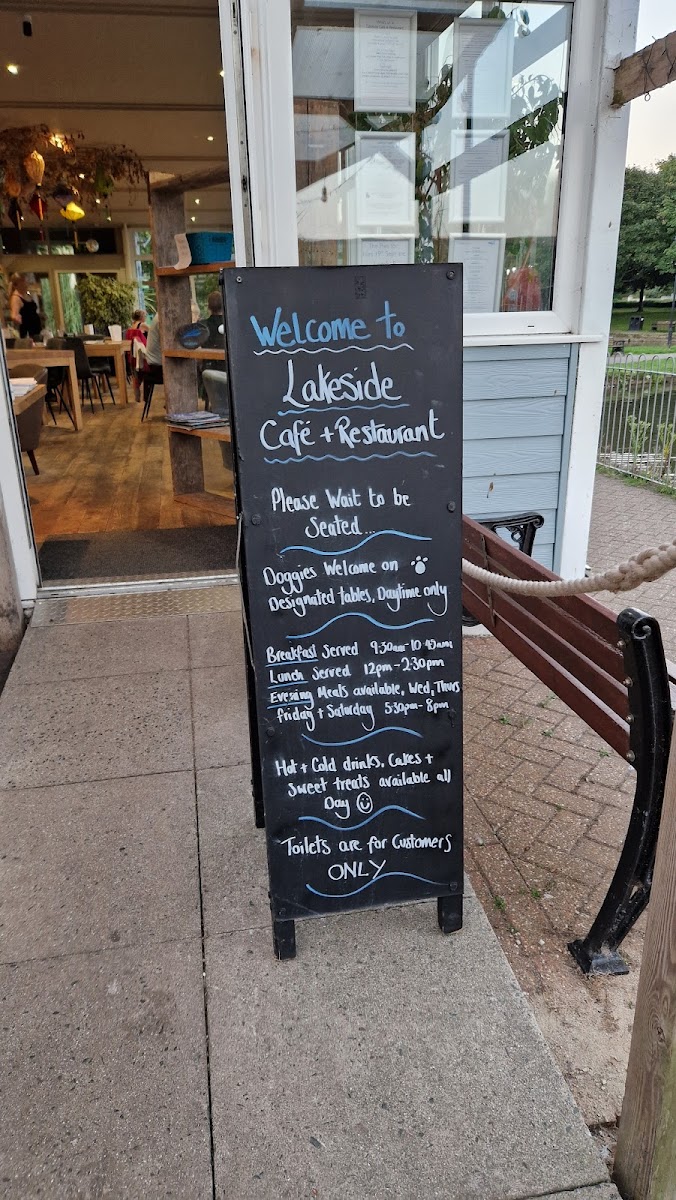 Welcome to
Lakeside
Café + Restaurant
Please Wait to be
Seated...
Doggies Welcome on
Designated tables, Daytime only
Breakfast Served 9:30am-10:45am
Lunch Served 12pm-2:30pm
Evening Meals available, Wed, Thurs
friday + Saturday 5:30pm-8pm
Hot + Cold drinks, Cakes +
Sweet treats available all
Day
Toilets are for Customers
ONLY